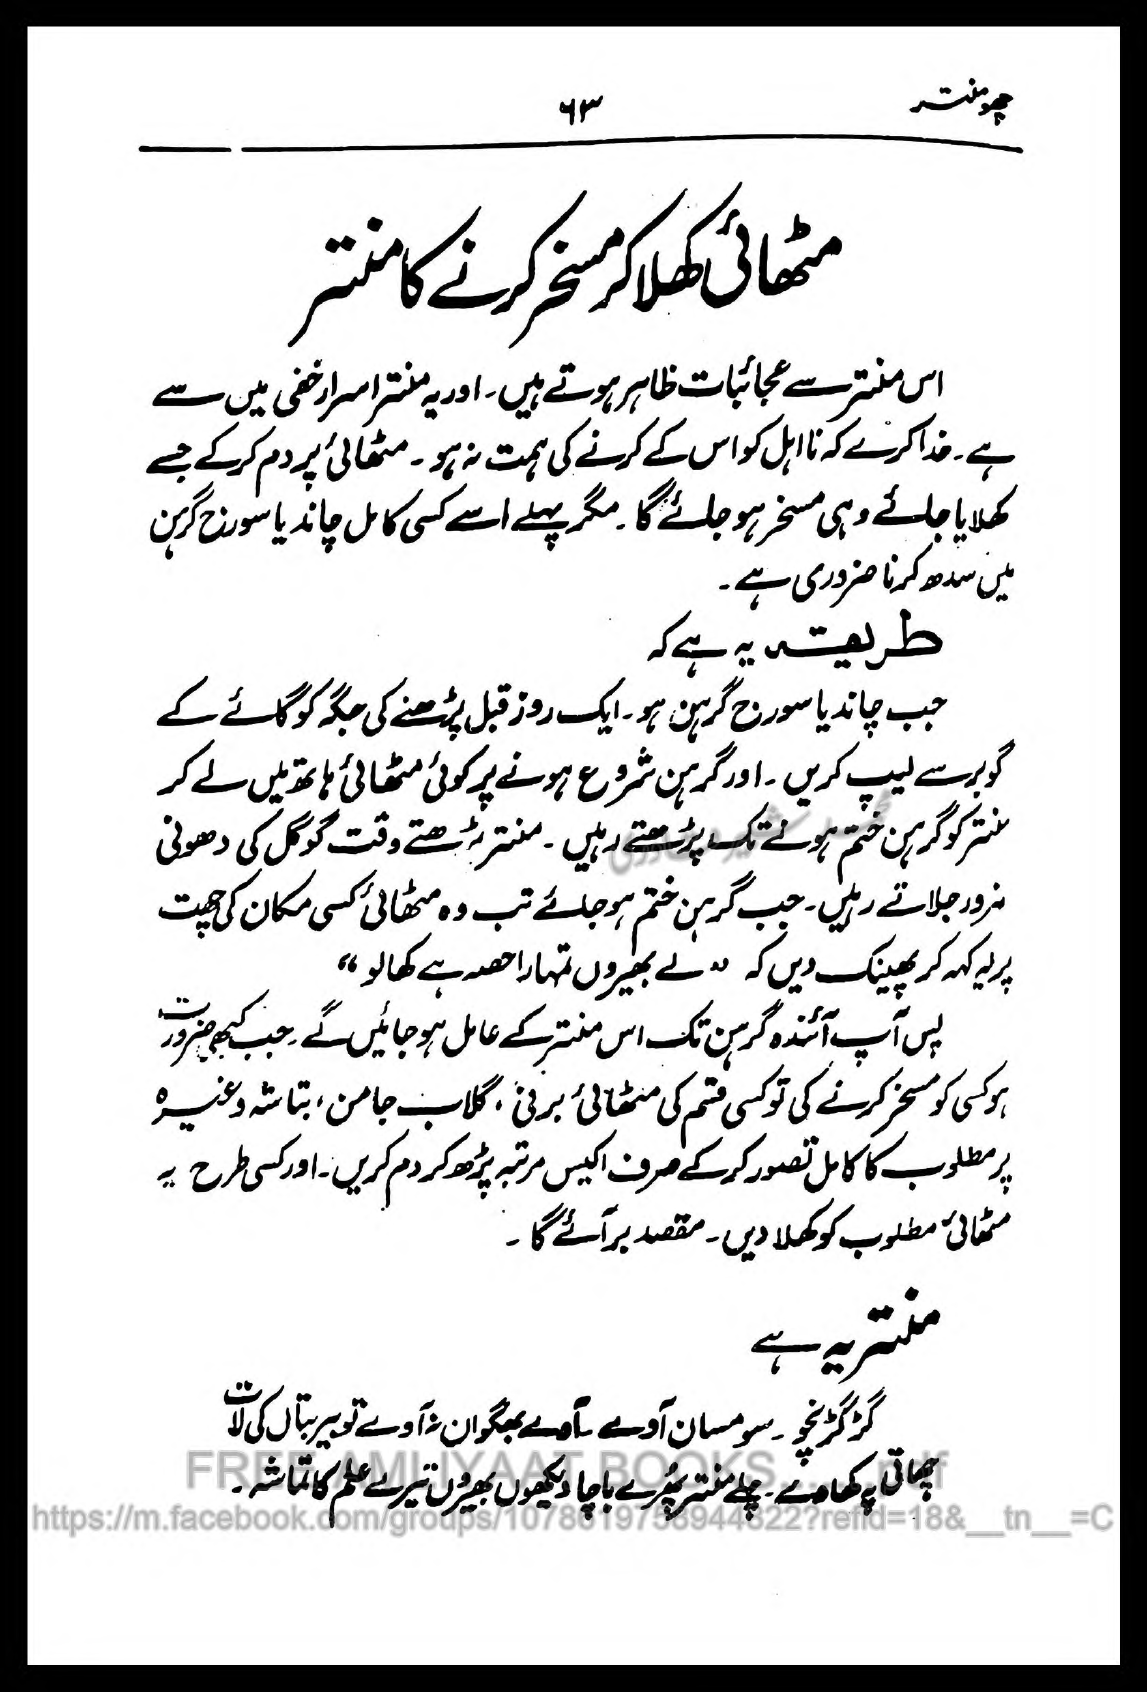 چھومنتر
۶۳
مٹھائی کھلا کر مسخر کرنے کا منتر
اس منتر سے عجائبات ظاہر ہوتے ہیں۔ اور یہ منتر اسرار خفی میں سے
ہے۔ خدا کرے کہ نااہل کو اس کے کرنے کی ہمت نہ ہو۔ مٹھائی پر دم کر کے جسے
کھلایا جائے وہی مسخر ہو جائے گا۔ مگر پہلے اسے کسی کامل چاند یا سورج گرہن
میں سدھ کرنا ضروری ہے۔
طریقہ یہ ہے کہ
جب چاند یا سورج گرہن ہو۔ ایک روز قبل پڑھنے کی جگہ کو گائے کے
گوبر سے لیپ کریں۔ اور گرہن شروع ہونے پر کوئی مٹھائی ہاتھ میں لے کر
منتر کو گرہن ختم ہونے تک پڑھتے رہیں۔ منتر پڑھتے وقت گوگل کی دھونی
ضرور جلاتے رہیں۔ جب گرہن ختم ہو جائے تب وہ مٹھائی کسی مکان کی چھت
پر یہ کہہ کر پھینک دیں کہ "لے بھیروں تمہارا حصہ ہے کھا لو"
پس آپ آئندہ گرہن تک اس منتر کے عامل ہو جائیں گے۔ جب کبھی ضرورت
ہو کسی کو مسخر کرنے کی تو کسی قسم کی مٹھائی برفی، گلاب جامن، بتاشہ وغیرہ
پر مطلوب کا کامل تصور کر کے صرف اکیس مرتبہ پڑھ کر دم کریں۔ اور کسی طرح یہ
مٹھائی مطلوب کو کھلا دیں۔ مقصد بر آئے گا۔
منتر یہ ہے
گڑگڑ نچو۔ سو مسان آوے۔ آوے بھگوان نہ آوے تو بیر بتال کی لات
چھاتی پہ کھاوے۔ چلے منتر پھرے باچا دیکھوں بھیروں تیرے علم کا تماشہ۔
FREE AMLIYAAT BOOKS pdf
https://m.facebook.com/groups/1078619758944322?refid=18&__tn__=C